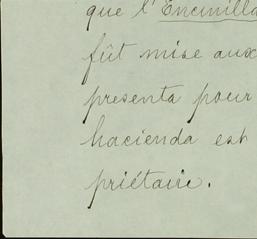 que l'Encinilla
fût mise aux
presenta pour
hacienda est
priétaire.